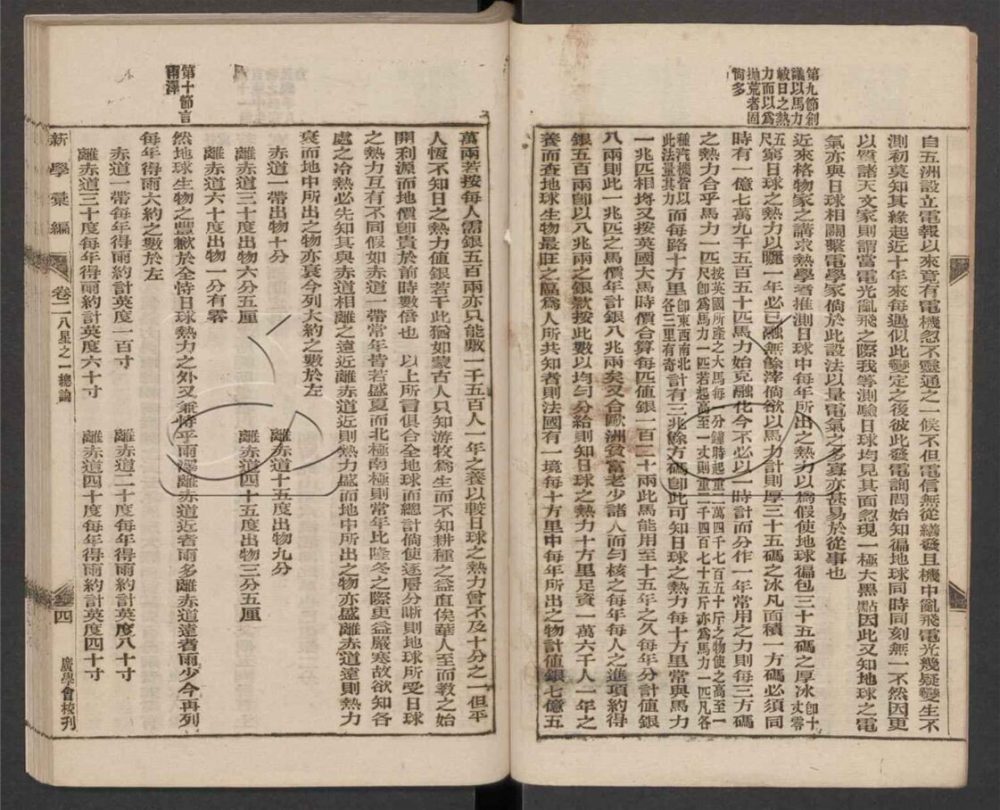 第九節創
議以馬力
較日之熱
力而以爲
拋荒者固
尙多
自五洲設立電報以來竟有電機忽不靈通之一候不但電信無從繕發且機中亂飛電光幾疑變生不
測初莫知其緣起近十年來每遇似此變定之後彼此發電詢問始知徧地球同時同刻無一不然因更
以質諸天文家則謂當電光亂飛之際我等測驗日球均見其面忽現一極大黑點因此又知地球之電
氣亦與日球相關繫電學家倘於此設法以量電氣之多寡亦甚易於從事也
近來格物家之講求熱學者推測日球中每年所出之熱力以爲假使地球徧包三十五碼之厚冰卽十丈零
五尺窮日球之熱力以曬一年必已融無餘滓倘欲以馬力計則厚三十五碼之冰凡面積一方碼必須同
時有一億七萬九千五百五十匹馬力始克融化今不必以一時計而分作一年常用之力則每三方碼
之熱力合乎馬力一匹按英國所產之大馬每一分鐘時起重二萬四千七百五十斤之物使之高至一尺卽爲馬力一匹若起高至一丈則重二千四百七十五斤亦爲馬力一匹凡各
種汽機皆以此法量其力而每路十方里卽東西南北各三里有奇計有三兆餘方碼卽此可知日球之熱力每十方里常與馬力
一兆匹相垺又按英國大馬時價合算每匹值銀一百二十兩此馬能用至十五年之久每年分計值銀
八兩則此一兆匹之馬價年計銀八兆兩矣又合歐洲貧富老少諸人而勻核之每年每人之進項約得
銀五百兩卽以八兆兩之銀數按此數以均勻分給則知日球之熱力十方里足資一萬六千人一年之
養而查地球生物最旺之區爲人所共知者則法國有一境每十方里中每年所出之物計值銀七億五
萬兩若按每人需銀五百兩亦只能敷一千五百人一年之養以較日球之熱力曾不及十分之一但平
人恆不知日之熱力值銀若干此猶如蒙古人只知游牧爲生而不知耕種之益直俟華人至而教之始
開利源而地價卽貴於前時數倍也 以上所言俱合全地球而總計倘使逐層分晰則地球所受日球
之熱力互有不同假如赤道一帶常年皆若盛夏而北極南極則常年比隆冬之際更益嚴寒故欲知各
處之冷熱必先知其與赤道相離之遠近離赤道近則熱力盛而地中所出之物亦盛離赤道遠則熱力
衰而地中所出之物亦衰今列大約之數於左
赤道一帶出物十分 離赤道十五度出物九分
離赤道三十度出物六分五厘 離赤道四十五度出物三分五厘
離赤道六十度出物一分有零
第十節言
雨澤
然地球生物之豐歉於全恃日球熱力之外又兼恃乎雨澤離赤道近者雨多離赤道遠者雨少今再列
每年得雨大約之數於左
赤道一帶每年得雨約計英度一百寸 離赤道二十度每年得雨約計英度八十寸
離赤道三十度每年得雨約計英度六十寸 離赤道四十度每年得雨約計英度四十寸
新學彙編 卷二 八星之一總論 四 廣學會校刋